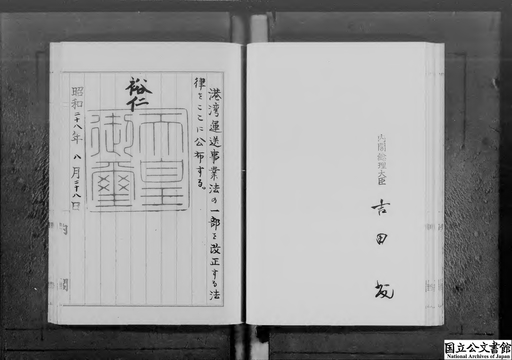 港湾運送事業法の一部を改正する法
律をここに公布する。
裕仁
天皇
御璽
昭和二十八年八月二十八日
内閣総理大臣
吉田茂
国立公文書館
National Archives of Japan